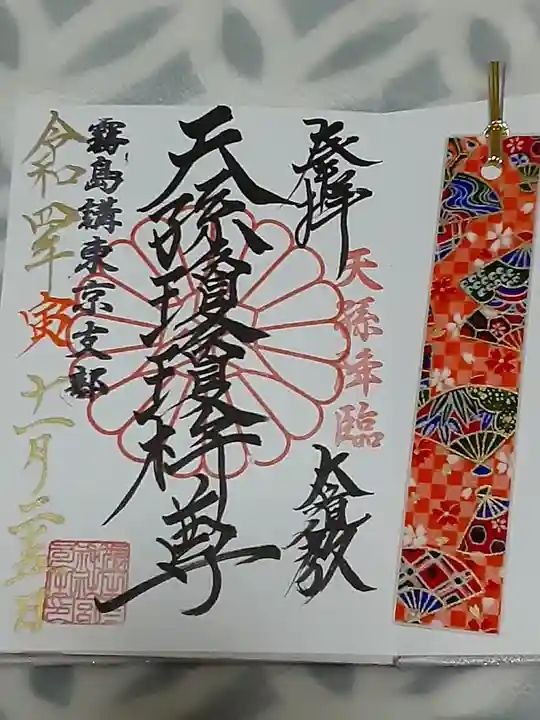 登拝
天孫降臨
大骨教
天孫瓊瓊杵尊
霧島講東京支部
令和四年寅十一月二十五日